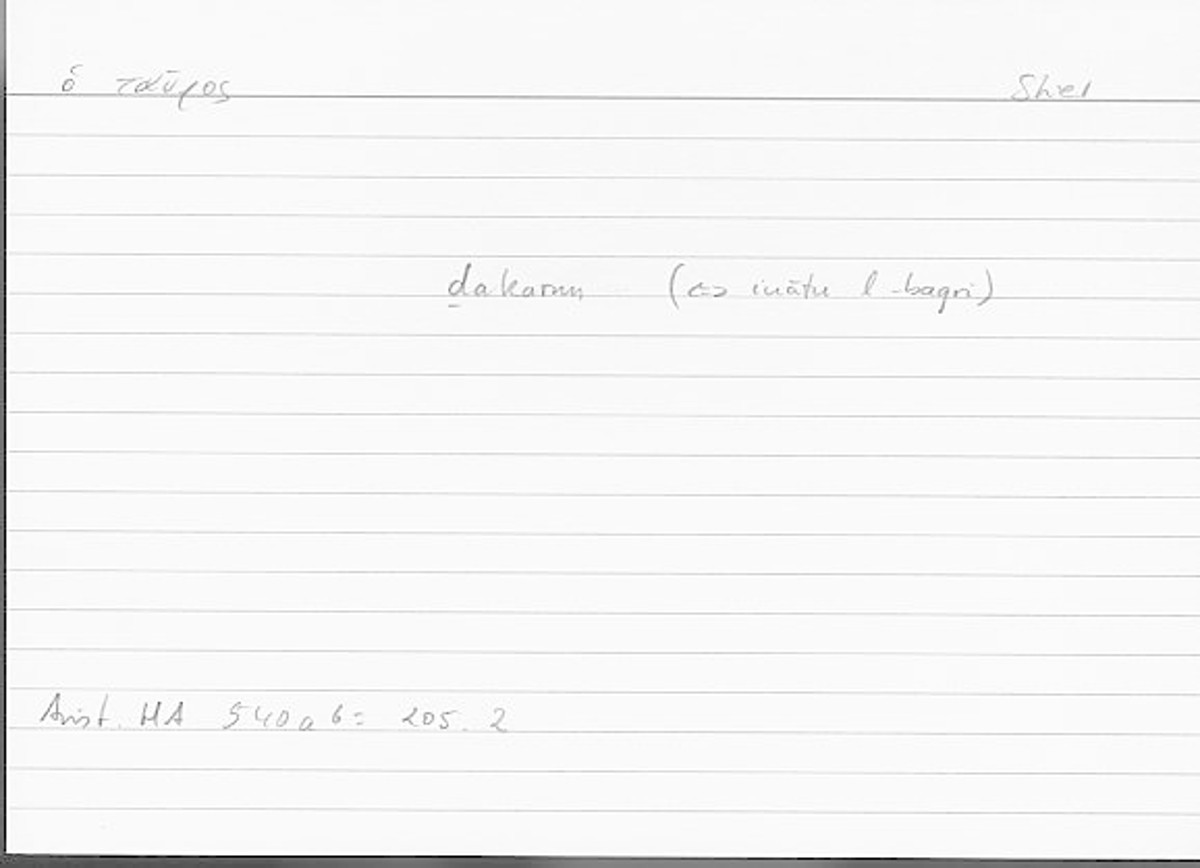 ὁ ταῦρος Stier
ḏakarun (⇔ ināṯu l-baqri)
Arist. HA 540a6 = 205.2